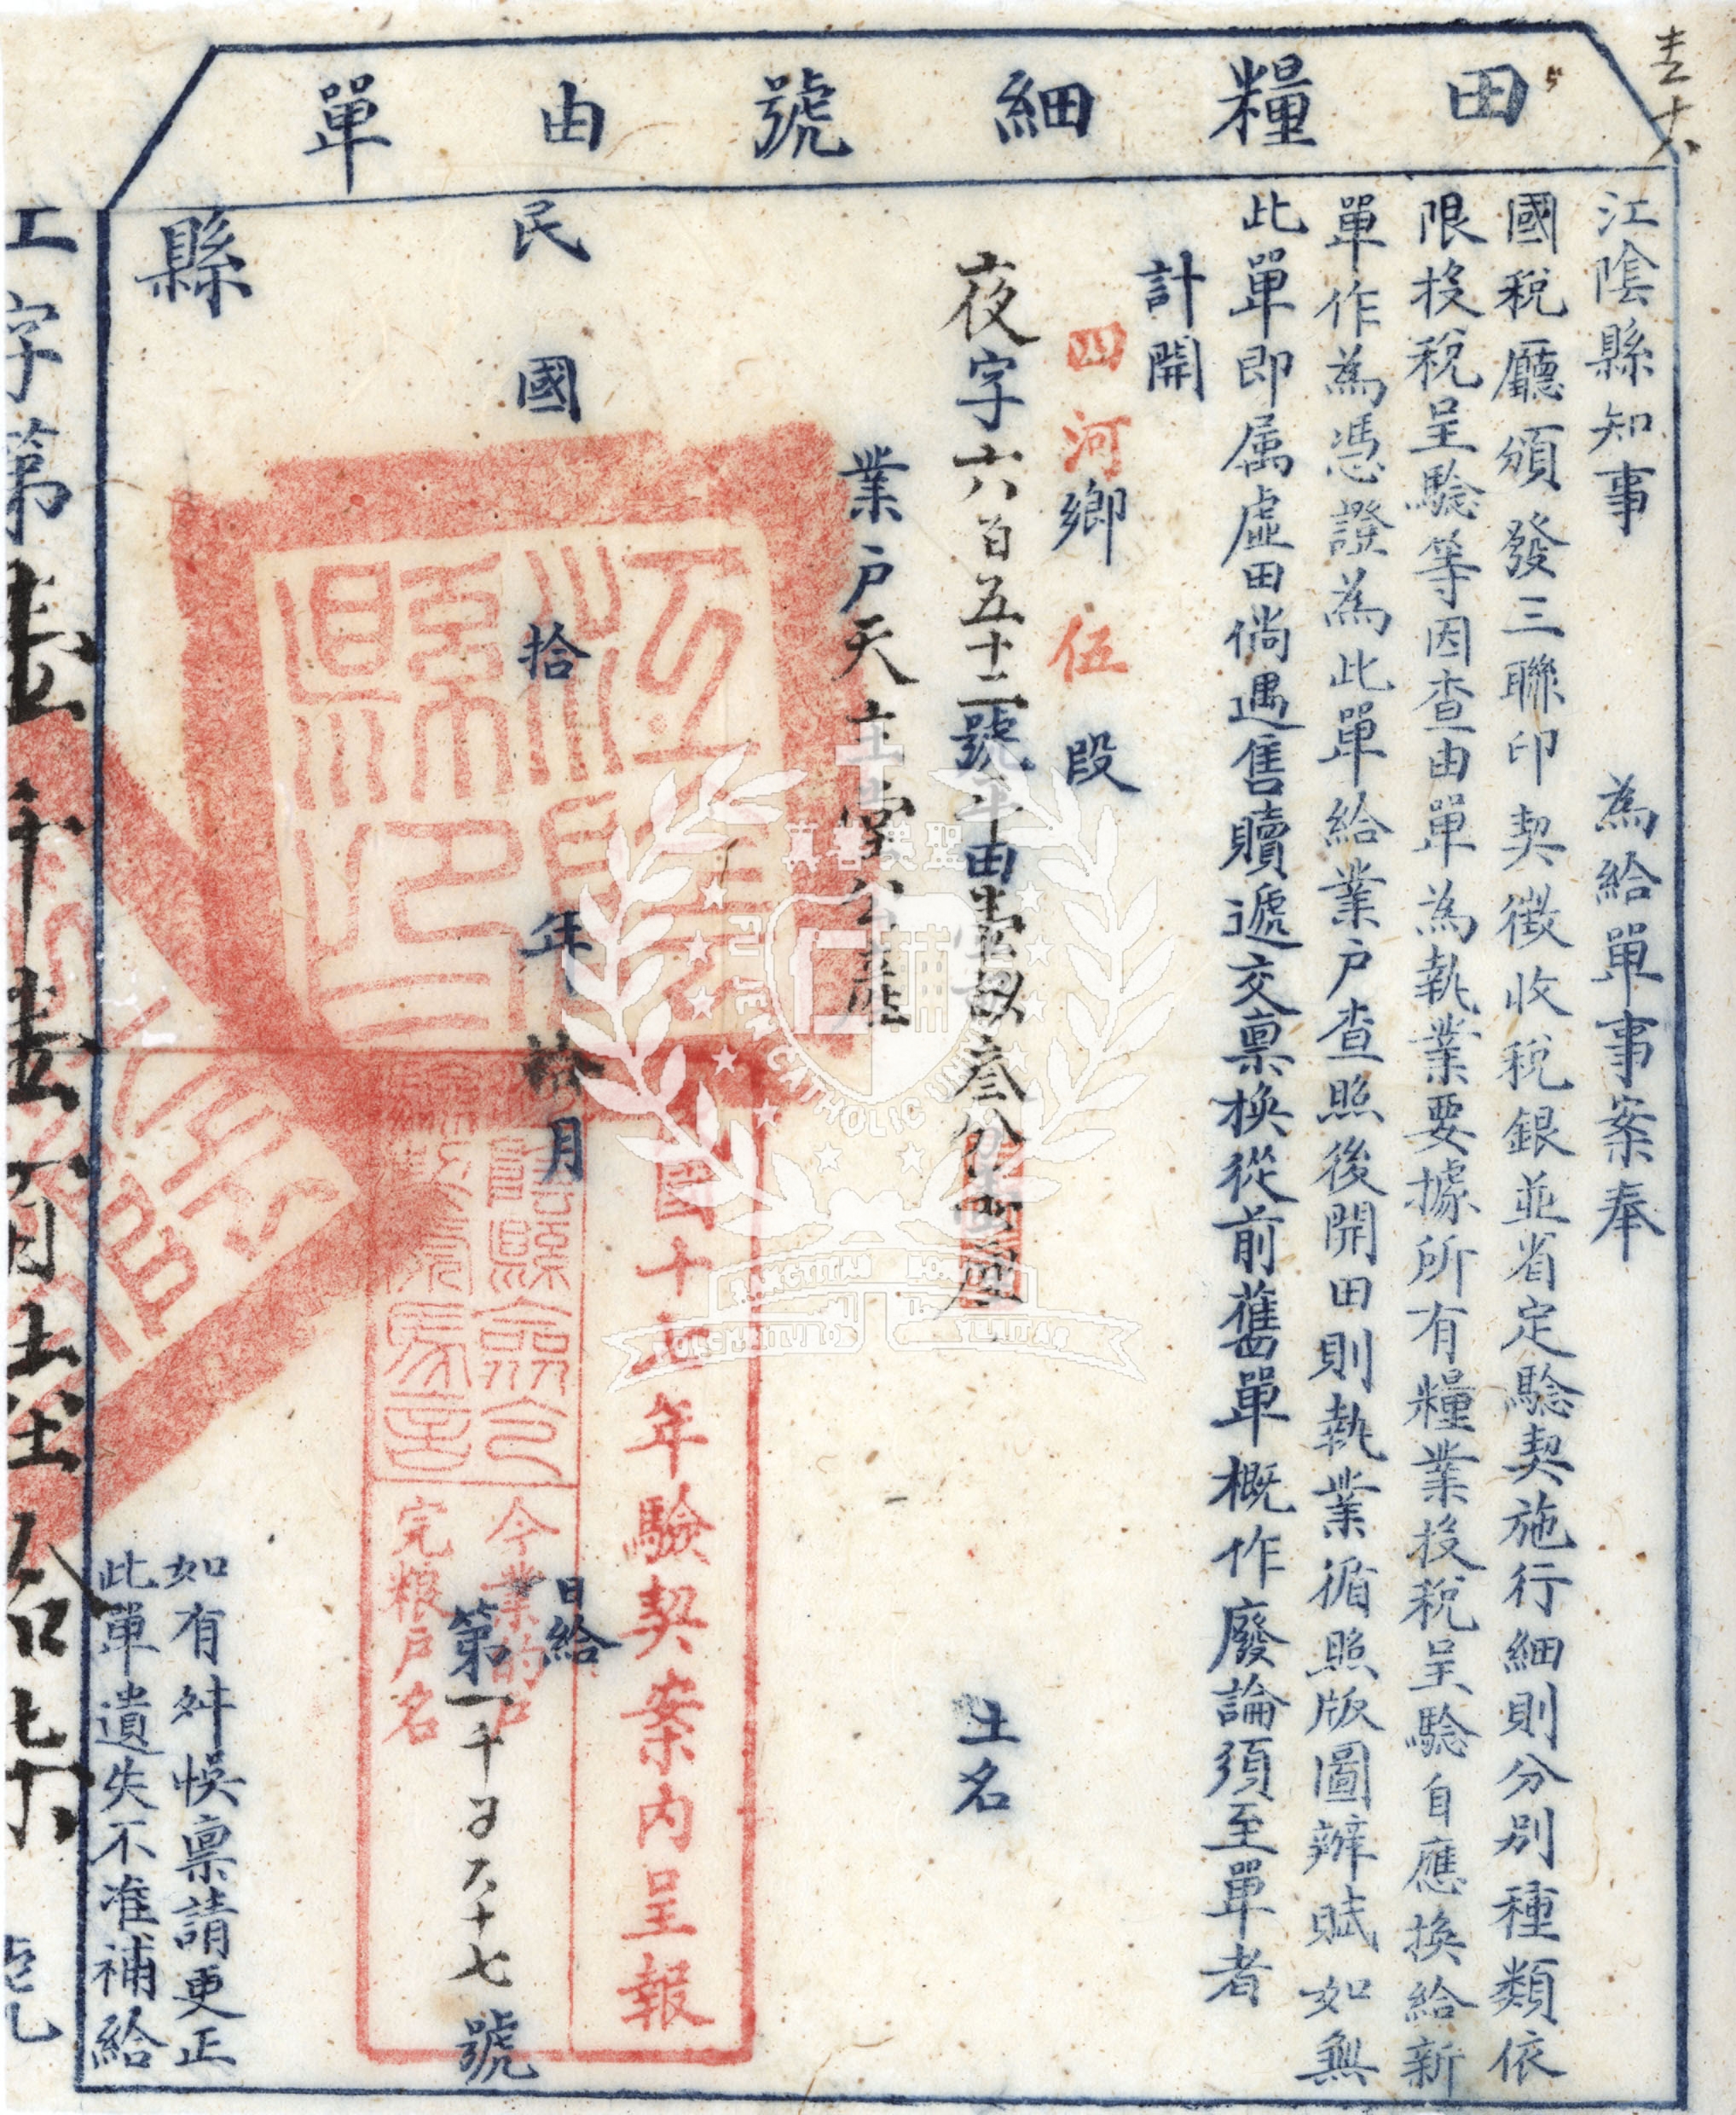 田糧細號由單
江陰縣知事　為給單事案奉
國稅廳頒發三聯印契徵收稅銀並省定驗契施行細則分別種類依
限投稅呈驗等因查由單為執業要據所有糧業投稅呈驗自應換給新
單作為憑證為此單給業戶查照後開田則執業循照版圖辦賦如無
此單即属虛田倘遇售贖遞交稟換從前舊單概作廢論須至單者
計開
四河鄉伍段
夜字六百五十二號平田壹畝叁分　土名
業戶天主堂公產
民國拾年拾月日給
第一千　六十七號
縣
如有舛悞稟請更正
此單遺失不准補給
江陰縣印
民國十五年驗契案內呈報
今業的户
完粮户名
字第壹千壹百　拾柒號